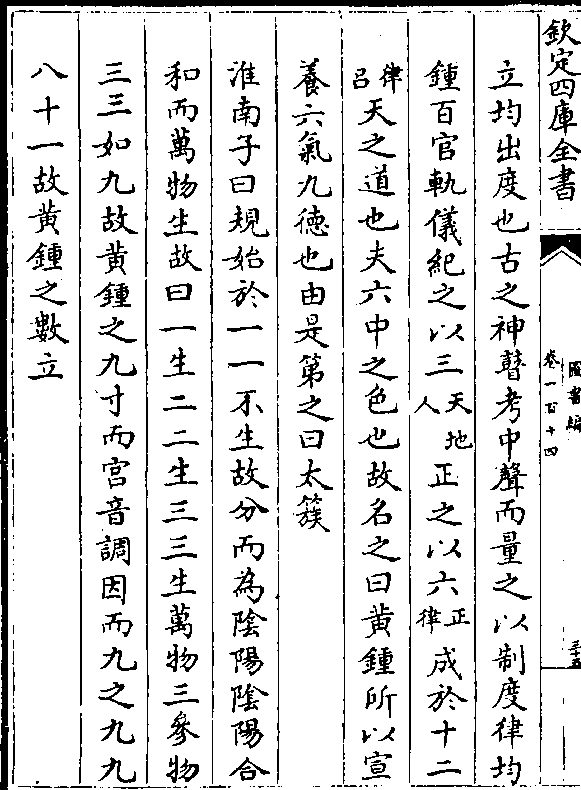 欽定四庫全書
圖書編
卷一百十四
三十五
立均出度也古之神瞽考中聲而量之以制度律均
鍾百官軌儀紀之以三天地人正之以六正律成於十二
律呂天之道也夫六中之色也故名之曰黄鍾所以宣
養六氣九德也由是第之曰太簇
淮南子曰規始於一一不生故分而為陰陽陰陽合
和而萬物生故曰一生二二生三三生萬物三參物
三三如九故黄鍾之九寸而宫音調因而九之九九
八十一故黄鍾之數立